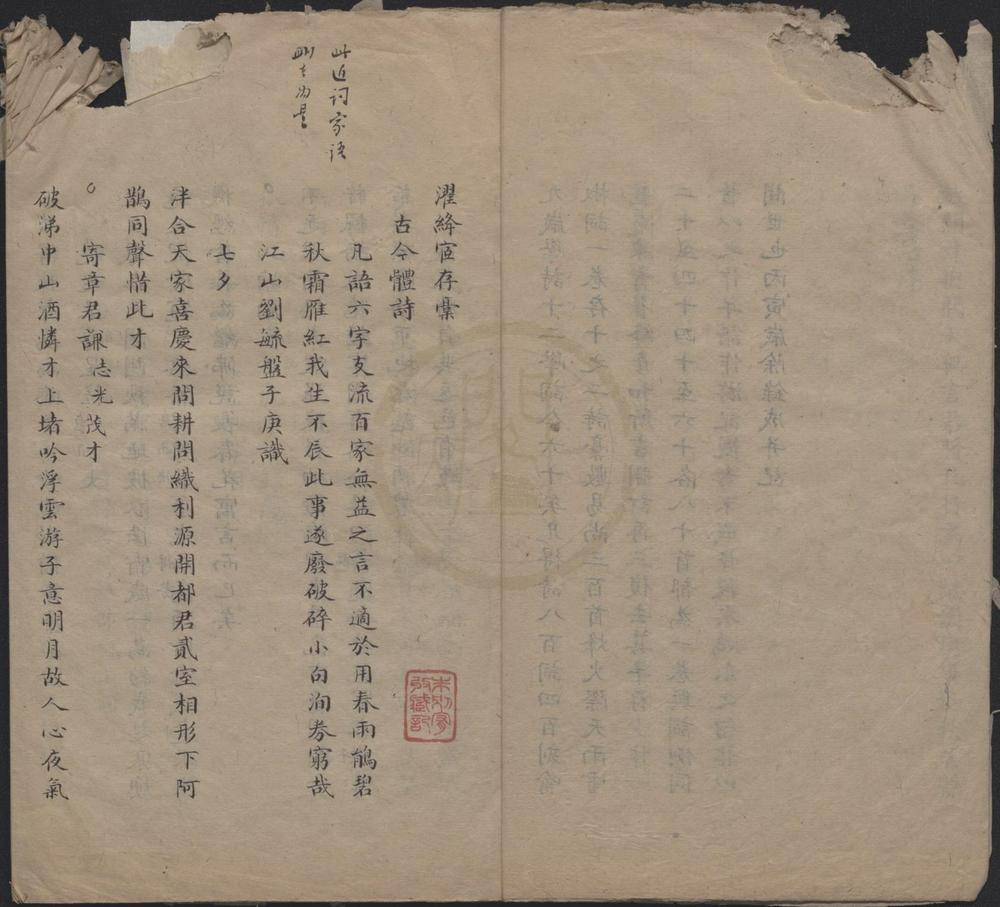 此近词家语
濯絳宧存稾
古今體詩
凡語六字支流百家無益之言不適於用春雨鵑碧
秋霜雁紅我生不辰此事遂廢破碎小白洵劵窮哉
江山劉毓盤子庚識
七夕
泮合天家喜慶來問耕問織利源開都君貳室相形下阿
鵲同聲惜此才
寄章君謙志光茂才
破涕中山酒憐才上堵吟浮雲游子意明月故人心夜氣
朱別宥
收藏記